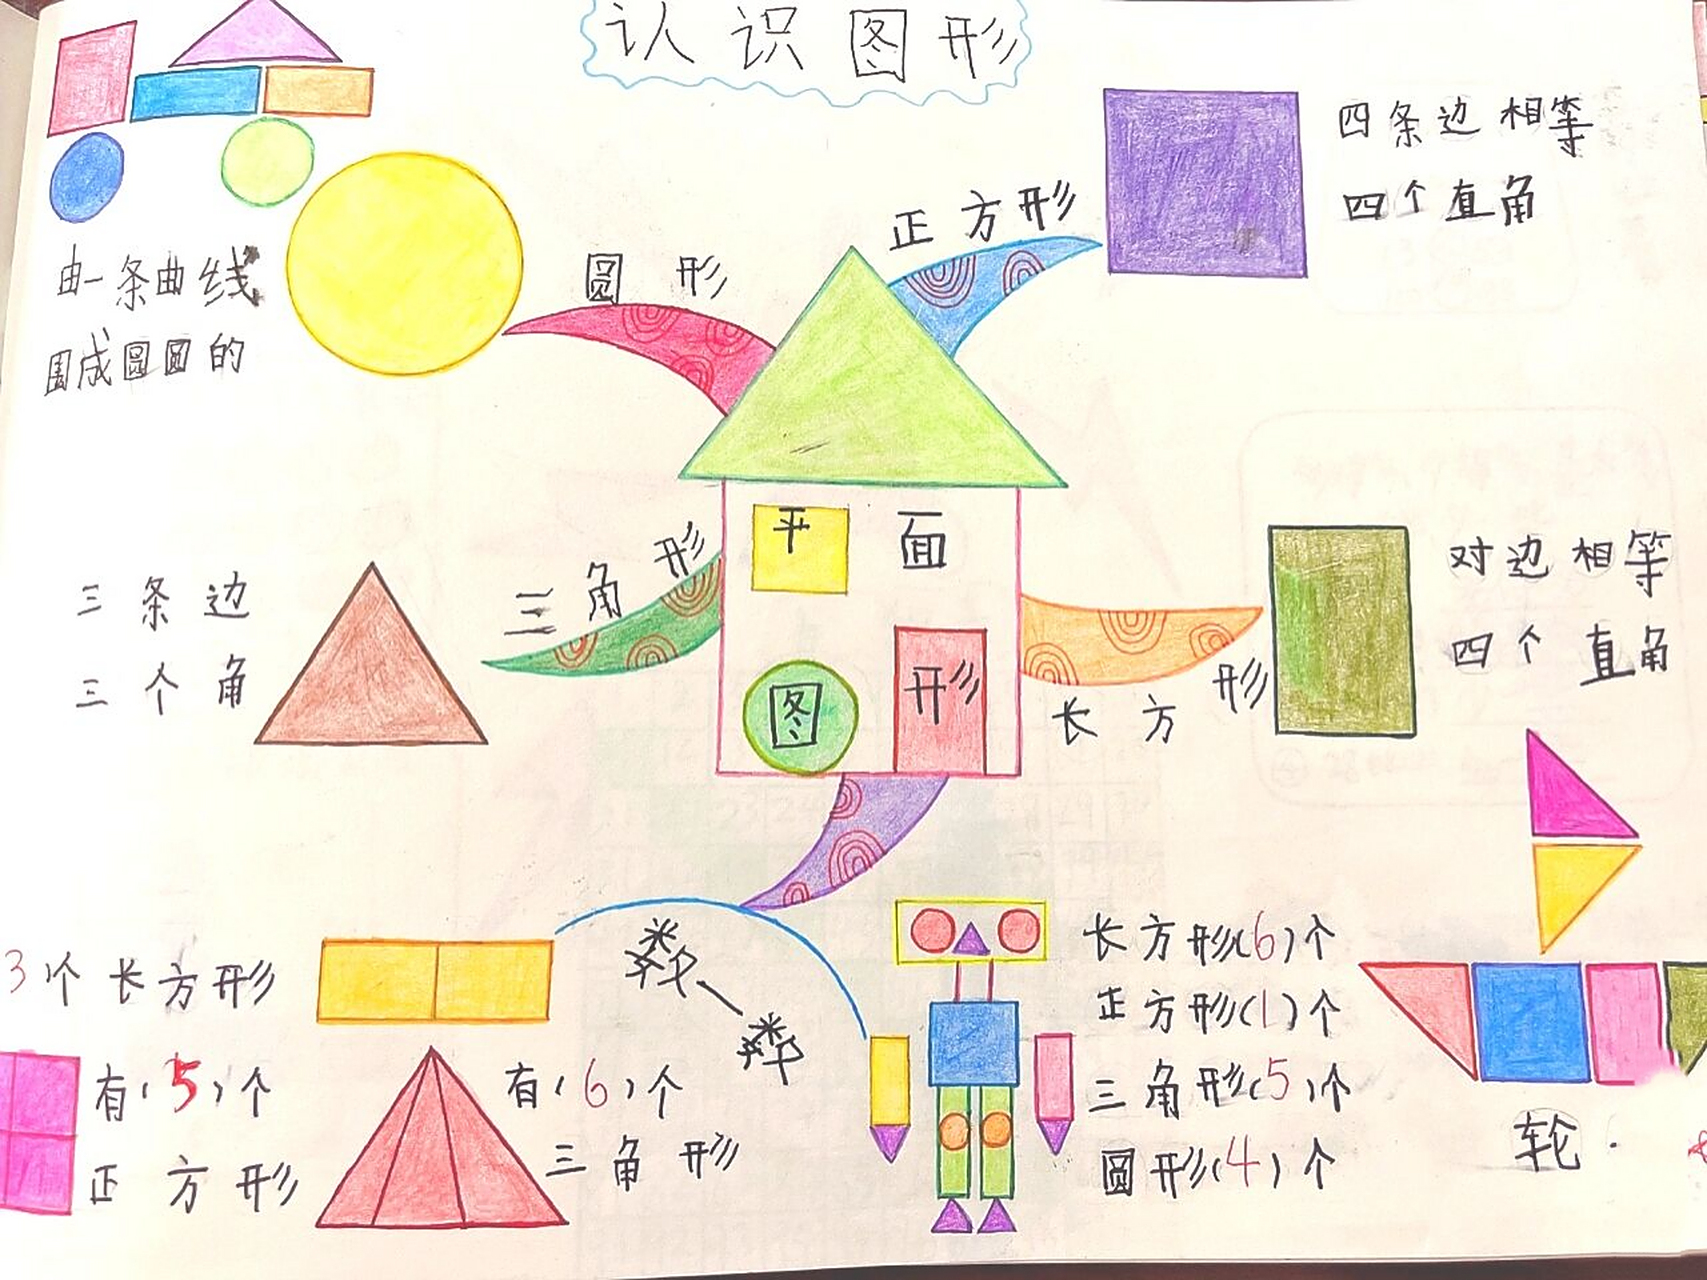 认识图形
正方形
四条边相等
四个直角
圆形
由一条曲线
围成圆圆的
平面
图形
三角形
三条边
三个角
长方形
对边相等
四个直角
数一数
3个长方形
有(5)个
正方形
有(6)个
三角形
长方形(6)个
正方形(1)个
三角形(5)个
圆形(4)个
轮.